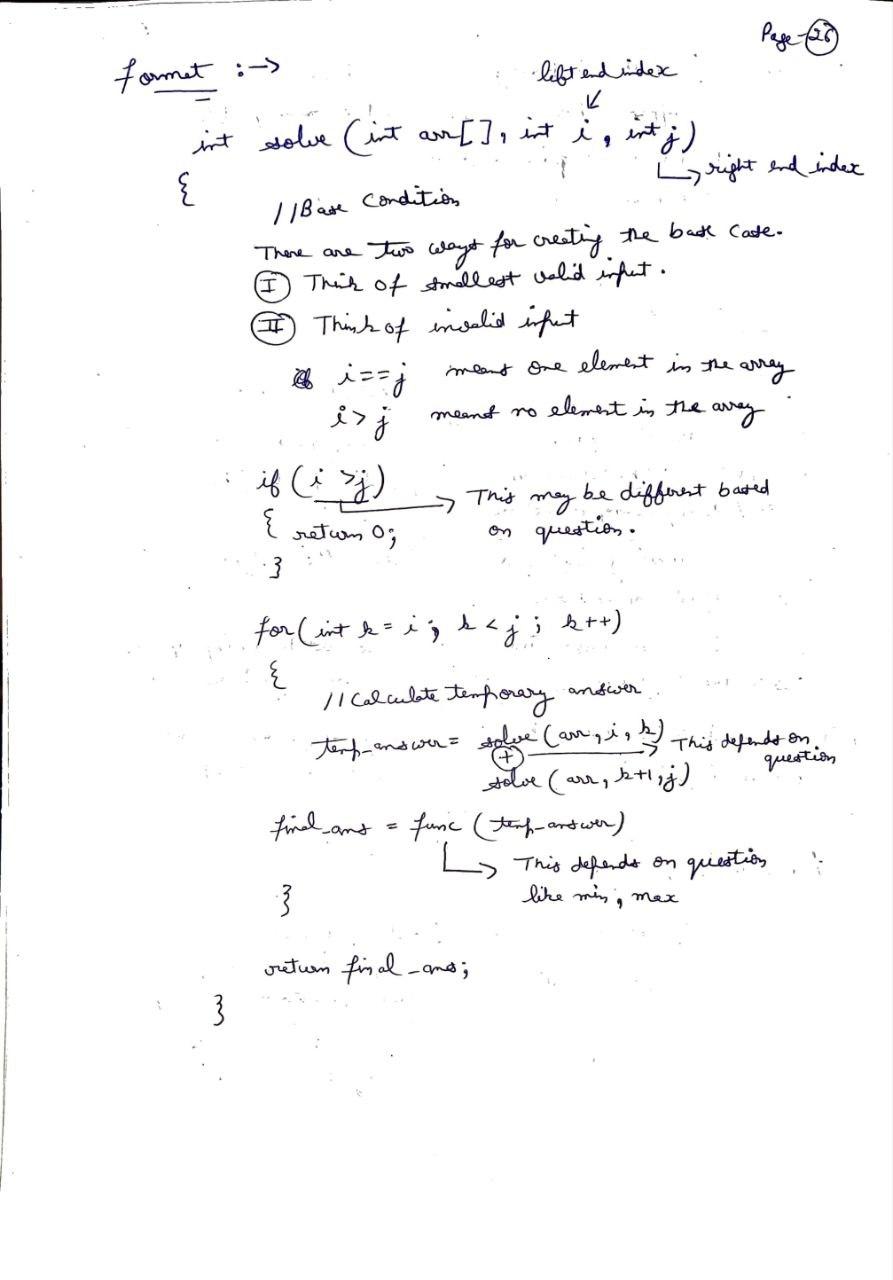 Page-26
formet :→
left end index
int solve (int arr[], int i, int j)
right end index
{
//Base Condition
There are two ways for creating the base case.
I Think of smallest valid input.
II Think of invalid input
i==j means one element in the array
i>j means no element in the array
if (i >j) → This may be different based
{ return 0; on question.
}
for(int k = i; k < j; k++)
{
//Calculate temporary answer
temp_answer = solve (arr, i, k) → This depends on
+ question
solve (arr, k+1, j)
final_ans = func (temp-answer)
→ This depends on question
like min, max
}
return final_ans;
}